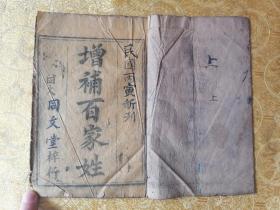 民國丙寅新刊
增補百家姓
同文堂梓行
上
上